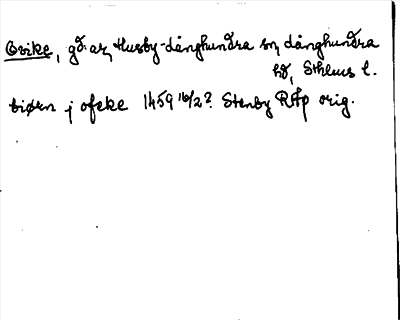 Ovike, gd. ar, Husby-Långhundra sn, Långhundra
hd, Sthlms l.
biørn j ofeke 1459 16/2? Stenby RAp orig.